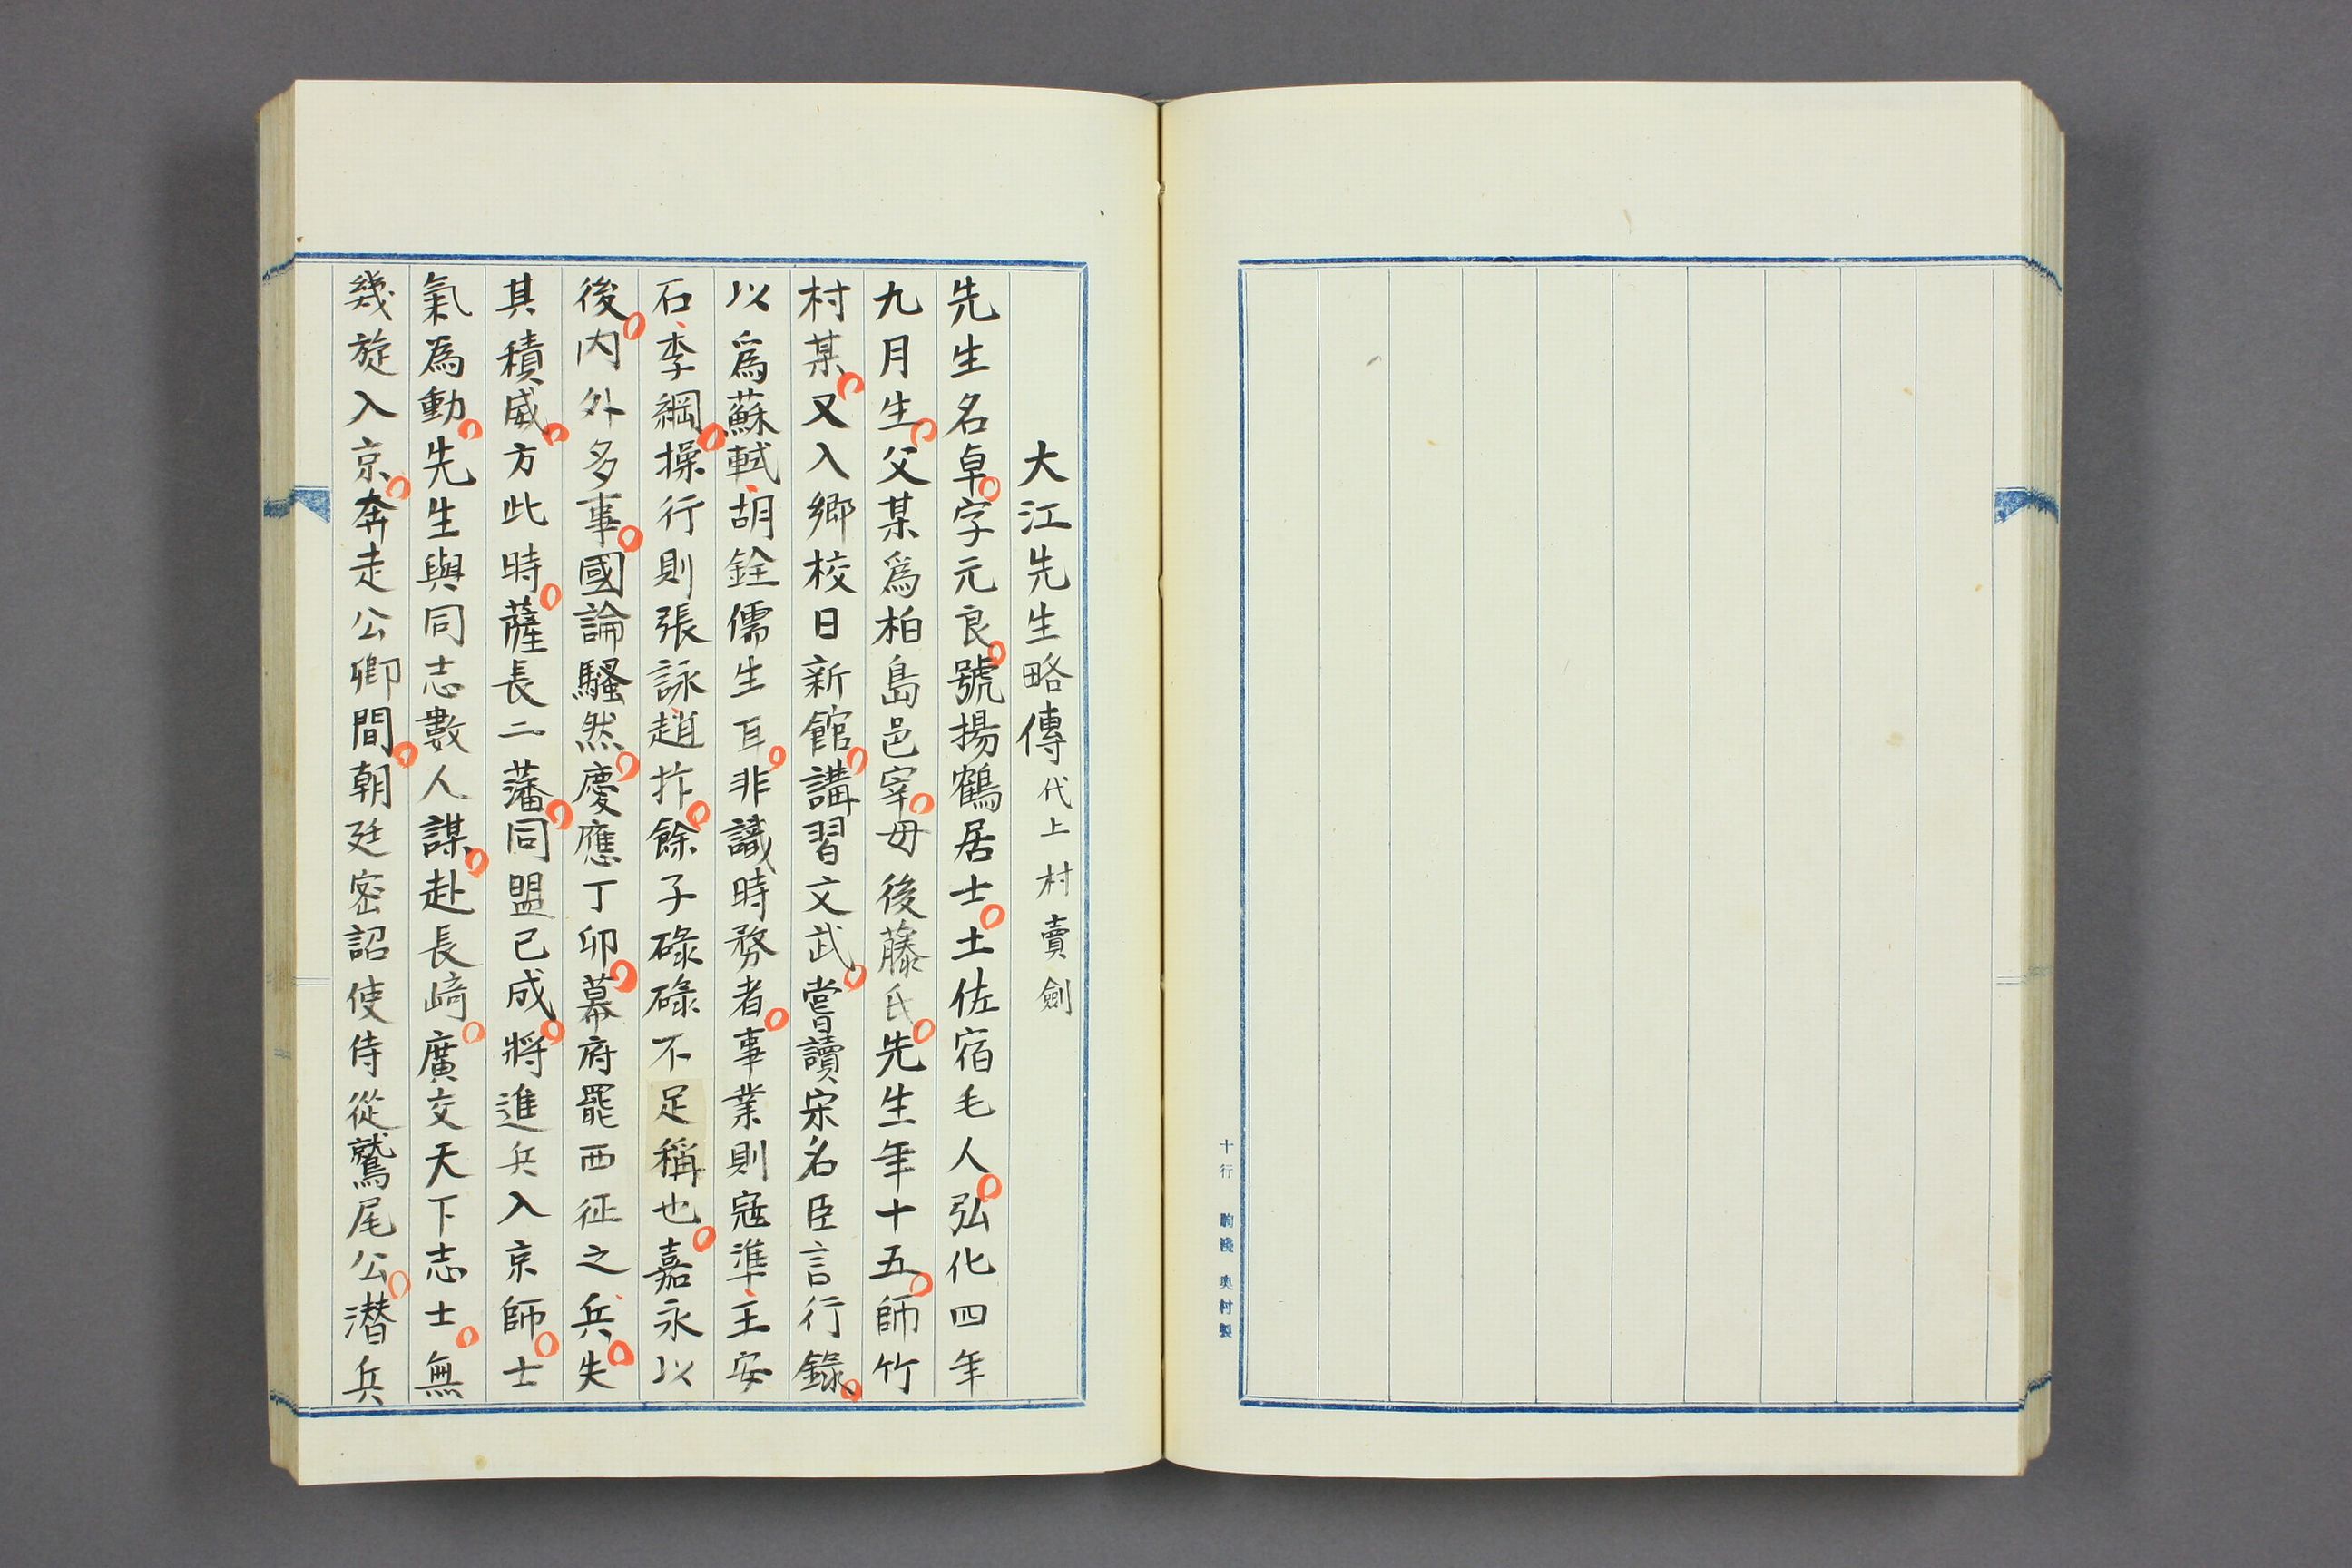 十行 駒淺 奥村製
大江先生略傳 代上村賣劍
先生名卓。字元良。號揚鶴居士。土佐宿毛人。弘化四年
九月生。父某爲柏島邑宰。母後藤氏。先生年十五。師竹
村某。又入鄉校日新館。講習文武。嘗讀宋名臣言行錄。
以爲蘇軾、胡銓儒生耳。非識時務者。事業則寇準、王安
石、李綱。操行則張詠、趙抃。餘子碌碌不足稱也。嘉永以
後。內外多事。國論騷然。慶應丁卯。幕府罷西征之兵、失。
其積威。方此時。薩長二藩。同盟已成。將進兵入京師。士
氣為動。先生與同志數人謀。赴長崎。廣交天下志士。無
幾旋入京。奔走公卿間。朝廷密詔使侍從鷲尾公。潛兵